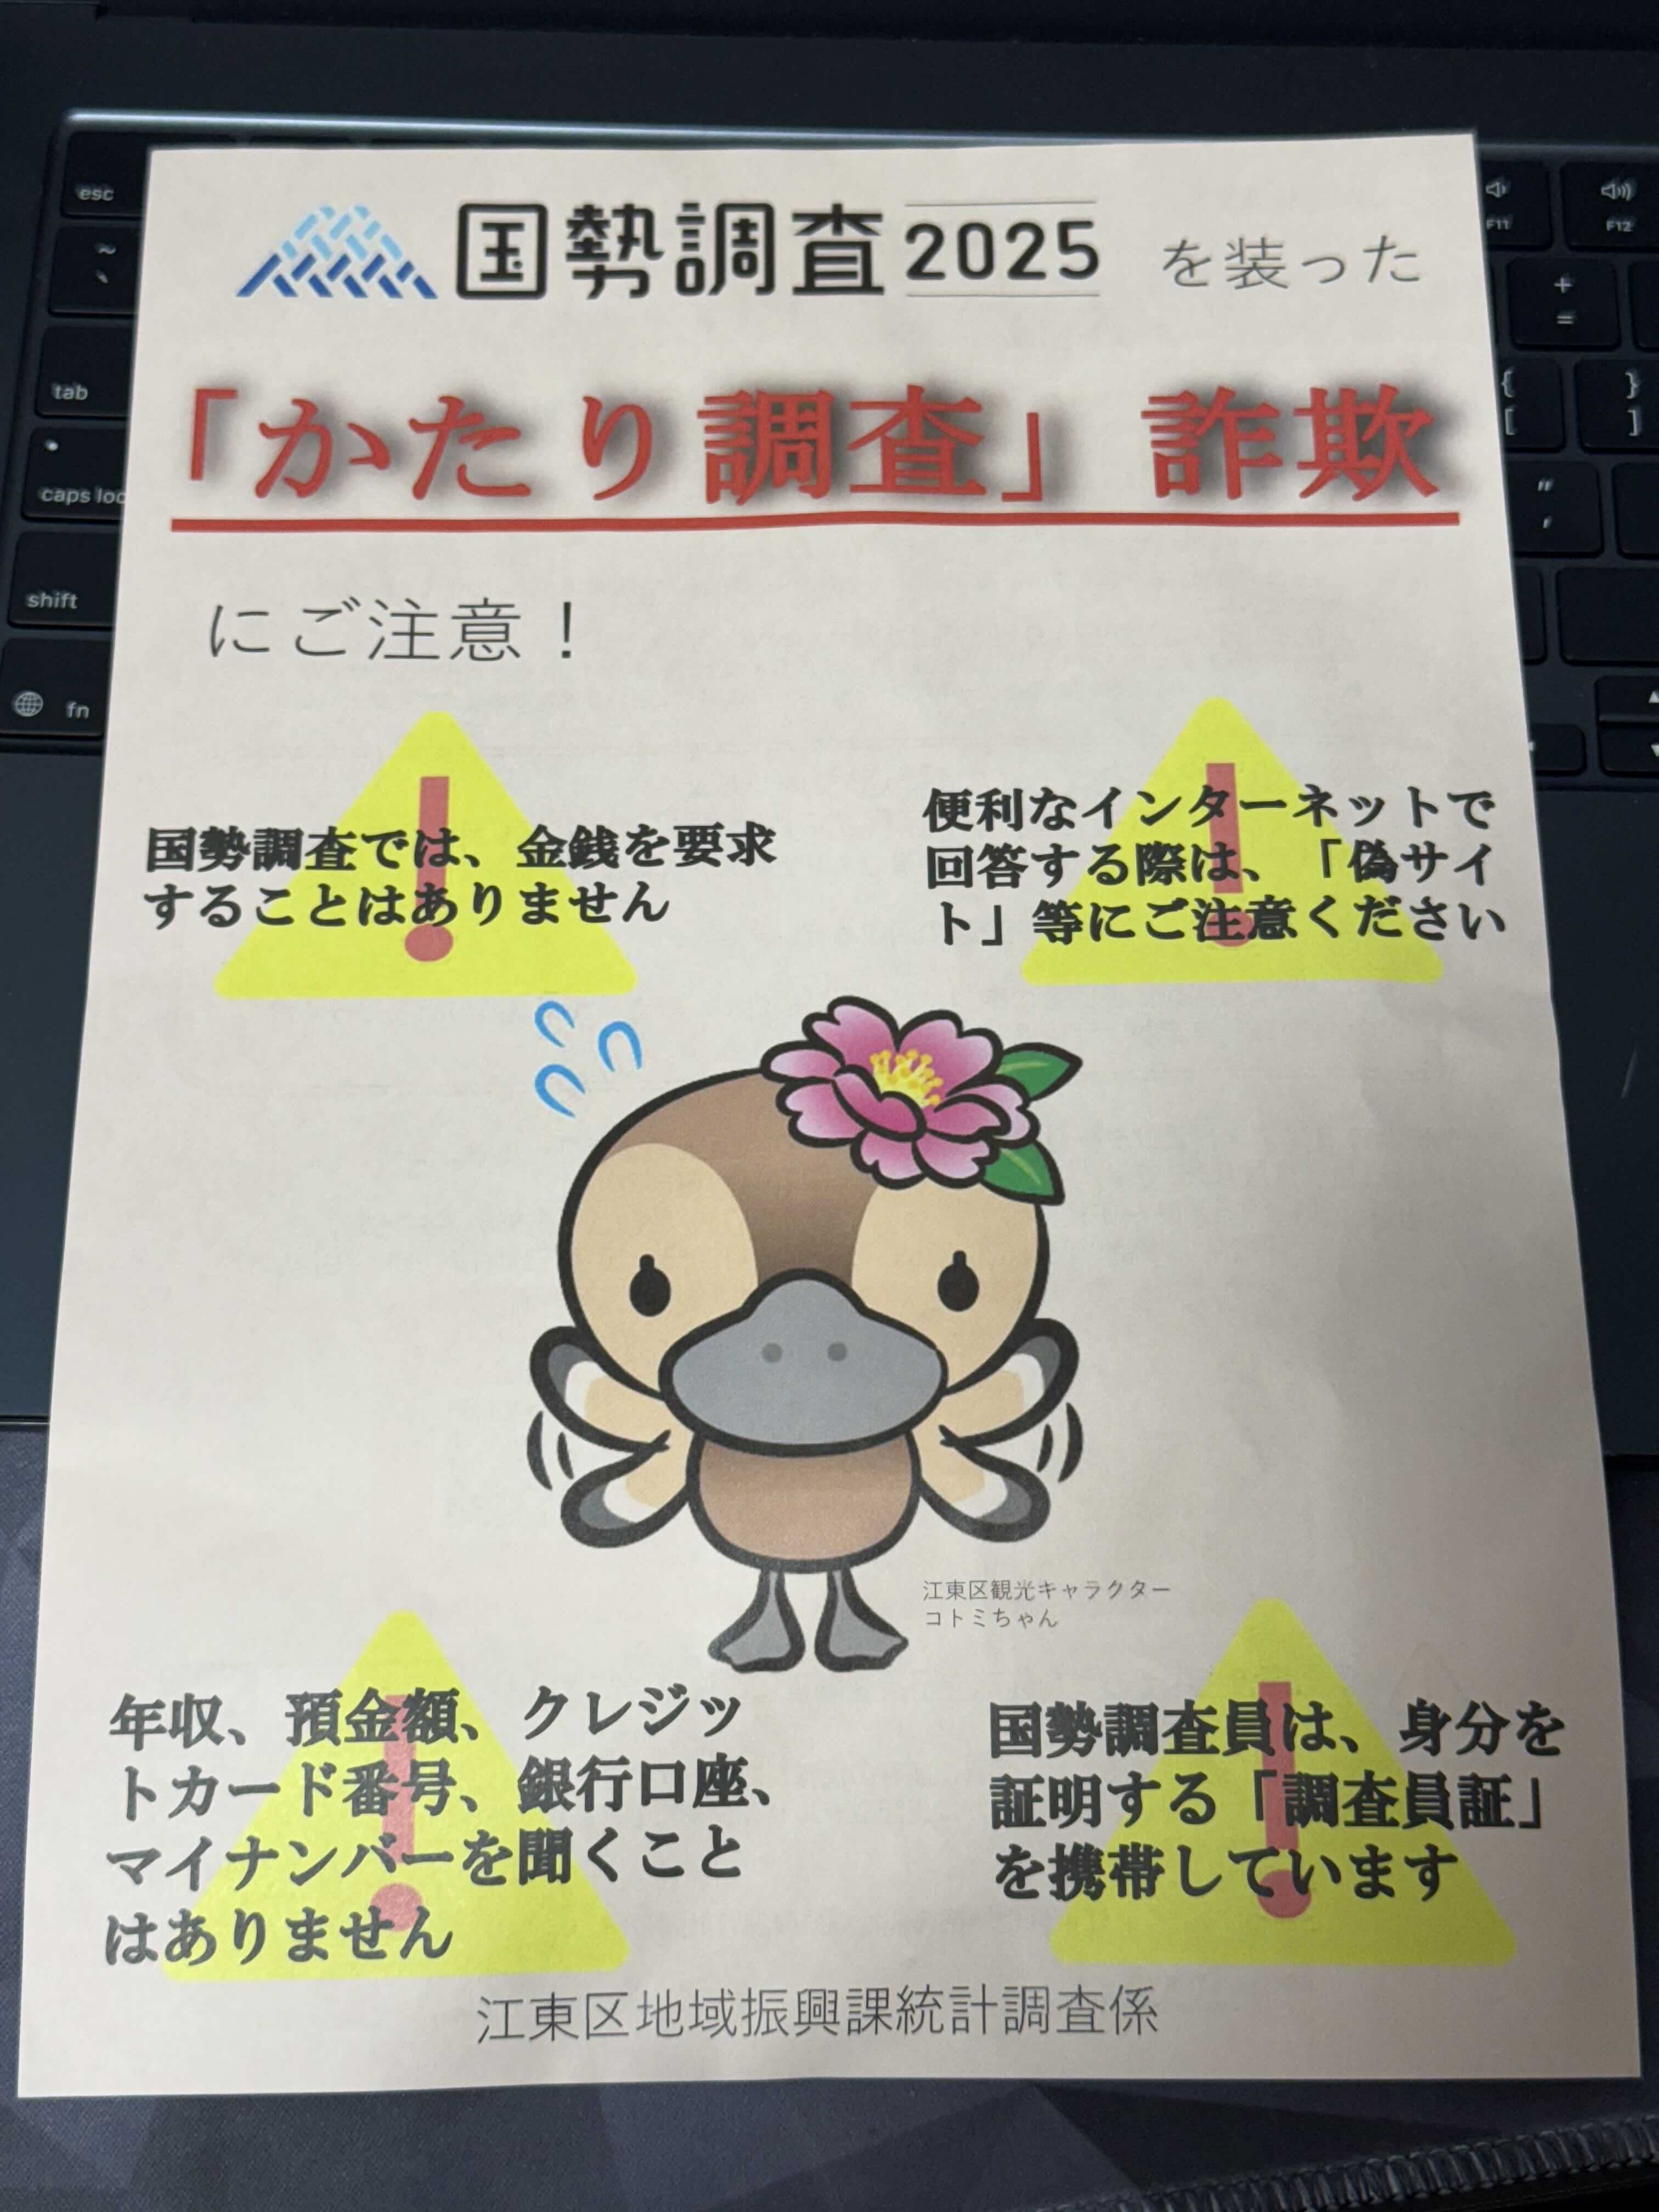 国勢調査2025 を装った
「かたり調査」詐欺
にご注意！
国勢調査では、金銭を要求
することはありません
便利なインターネットで
回答する際は、「偽サイ
ト」等にご注意ください
江東区観光キャラクター
コトミちゃん
年収、預金額、クレジッ
トカード番号、銀行口座、
マイナンバーを聞くこと
はありません
国勢調査員は、身分を
証明する「調査員証」
を携帯しています
江東区地域振興課統計調査係
esc
~
`
tab
caps loc
shift
fn
F11
F12
+
=
{
[
}
]
"
'